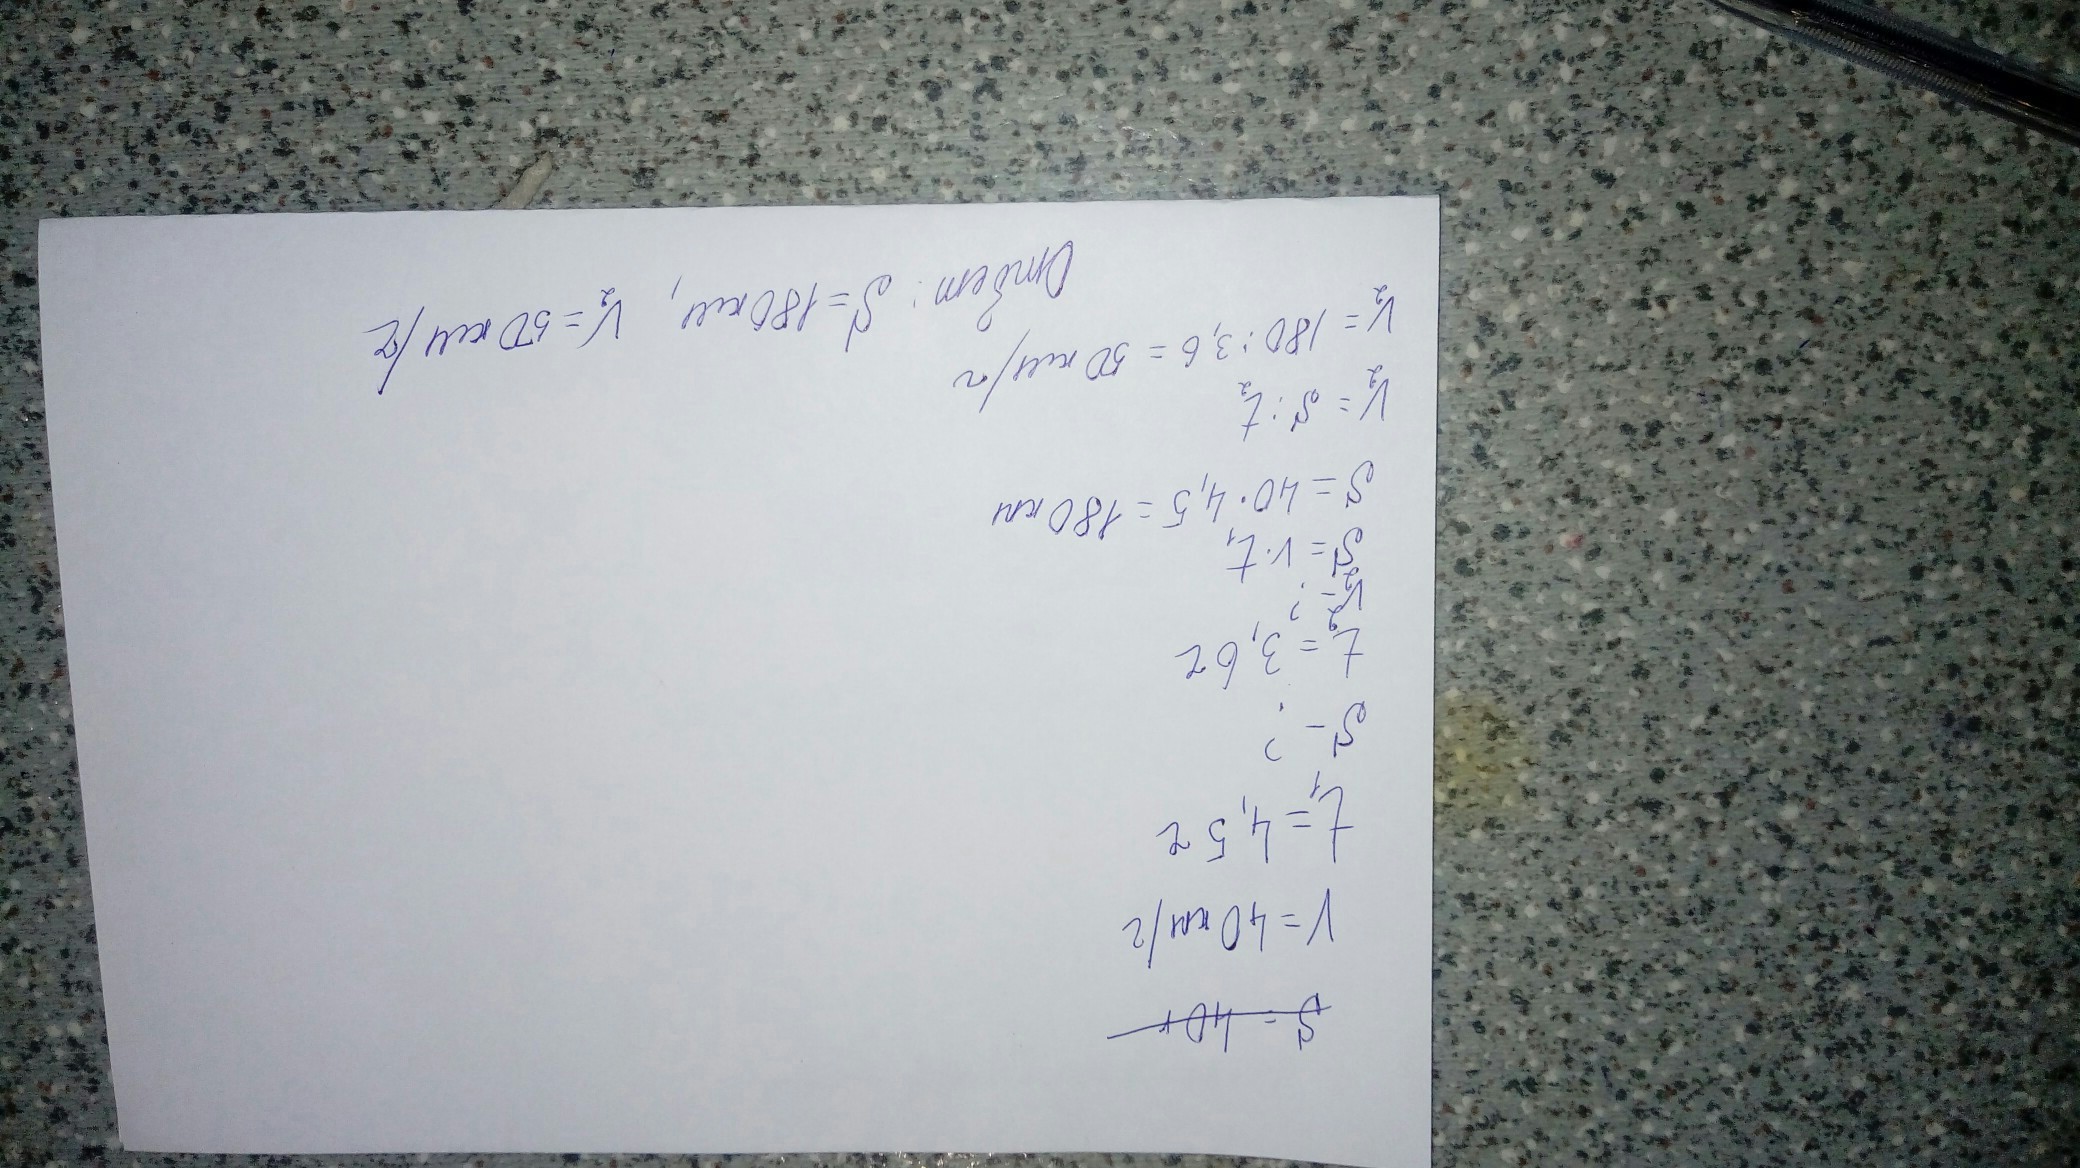 S = 40 к
V = 40 км/г
t₁ = 4,5 г
S - ?
t₂ = 3,6 г
V₂ - ?
S = V · t₁
S = 40 · 4,5 = 180 км
V₂ = S : t₂
V₂ = 180 : 3,6 = 50 км/г
Ответ: S = 180 км, V₂ = 50 км/г